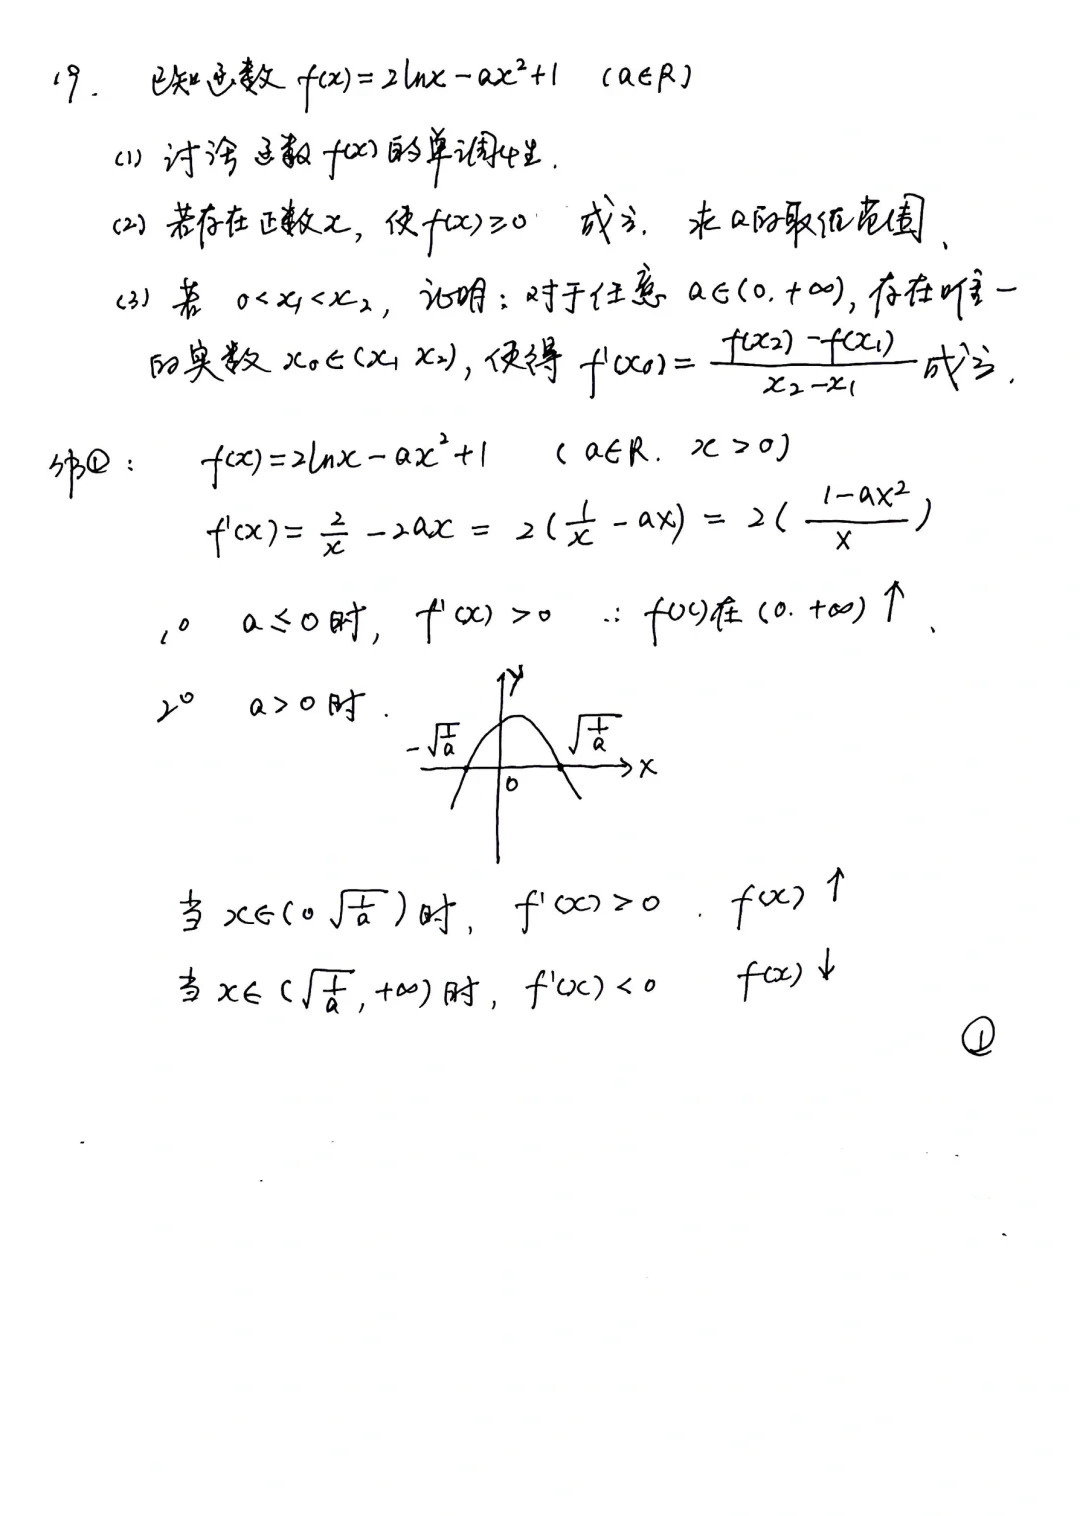 19. 已知函数 f(x)=2lnx-ax²+1 (a∈R)
(1) 讨论函数 f(x) 的单调性.
(2) 若存在正数x, 使f(x)≥0 成立. 求a的取值范围.
(3) 若 0<x₁<x₂, 证明: 对于任意 a∈(0.+∞), 存在唯一
的实数 x₀∈(x₁ x₂), 使得 f'(x₀)= \frac{f(x₂)-f(x₁)}{x₂-x₁} 成立.
解①: f(x)=2lnx-ax²+1 (a∈R. x>0)
f'(x)= \frac{2}{x} -2ax = 2(\frac{1}{x} -ax) = 2(\frac{1-ax²}{x})
1° a≤0时, f'(x)>0 ∴ f(x)在(0.+∞)↑.
2° a>0时.
y
-√\frac{1}{a} √\frac{1}{a}
0 x
当 x∈(0 √\frac{1}{a})时, f'(x)>0. f(x)↑
当 x∈(√\frac{1}{a},+∞)时, f'(x)<0 f(x)↓
①